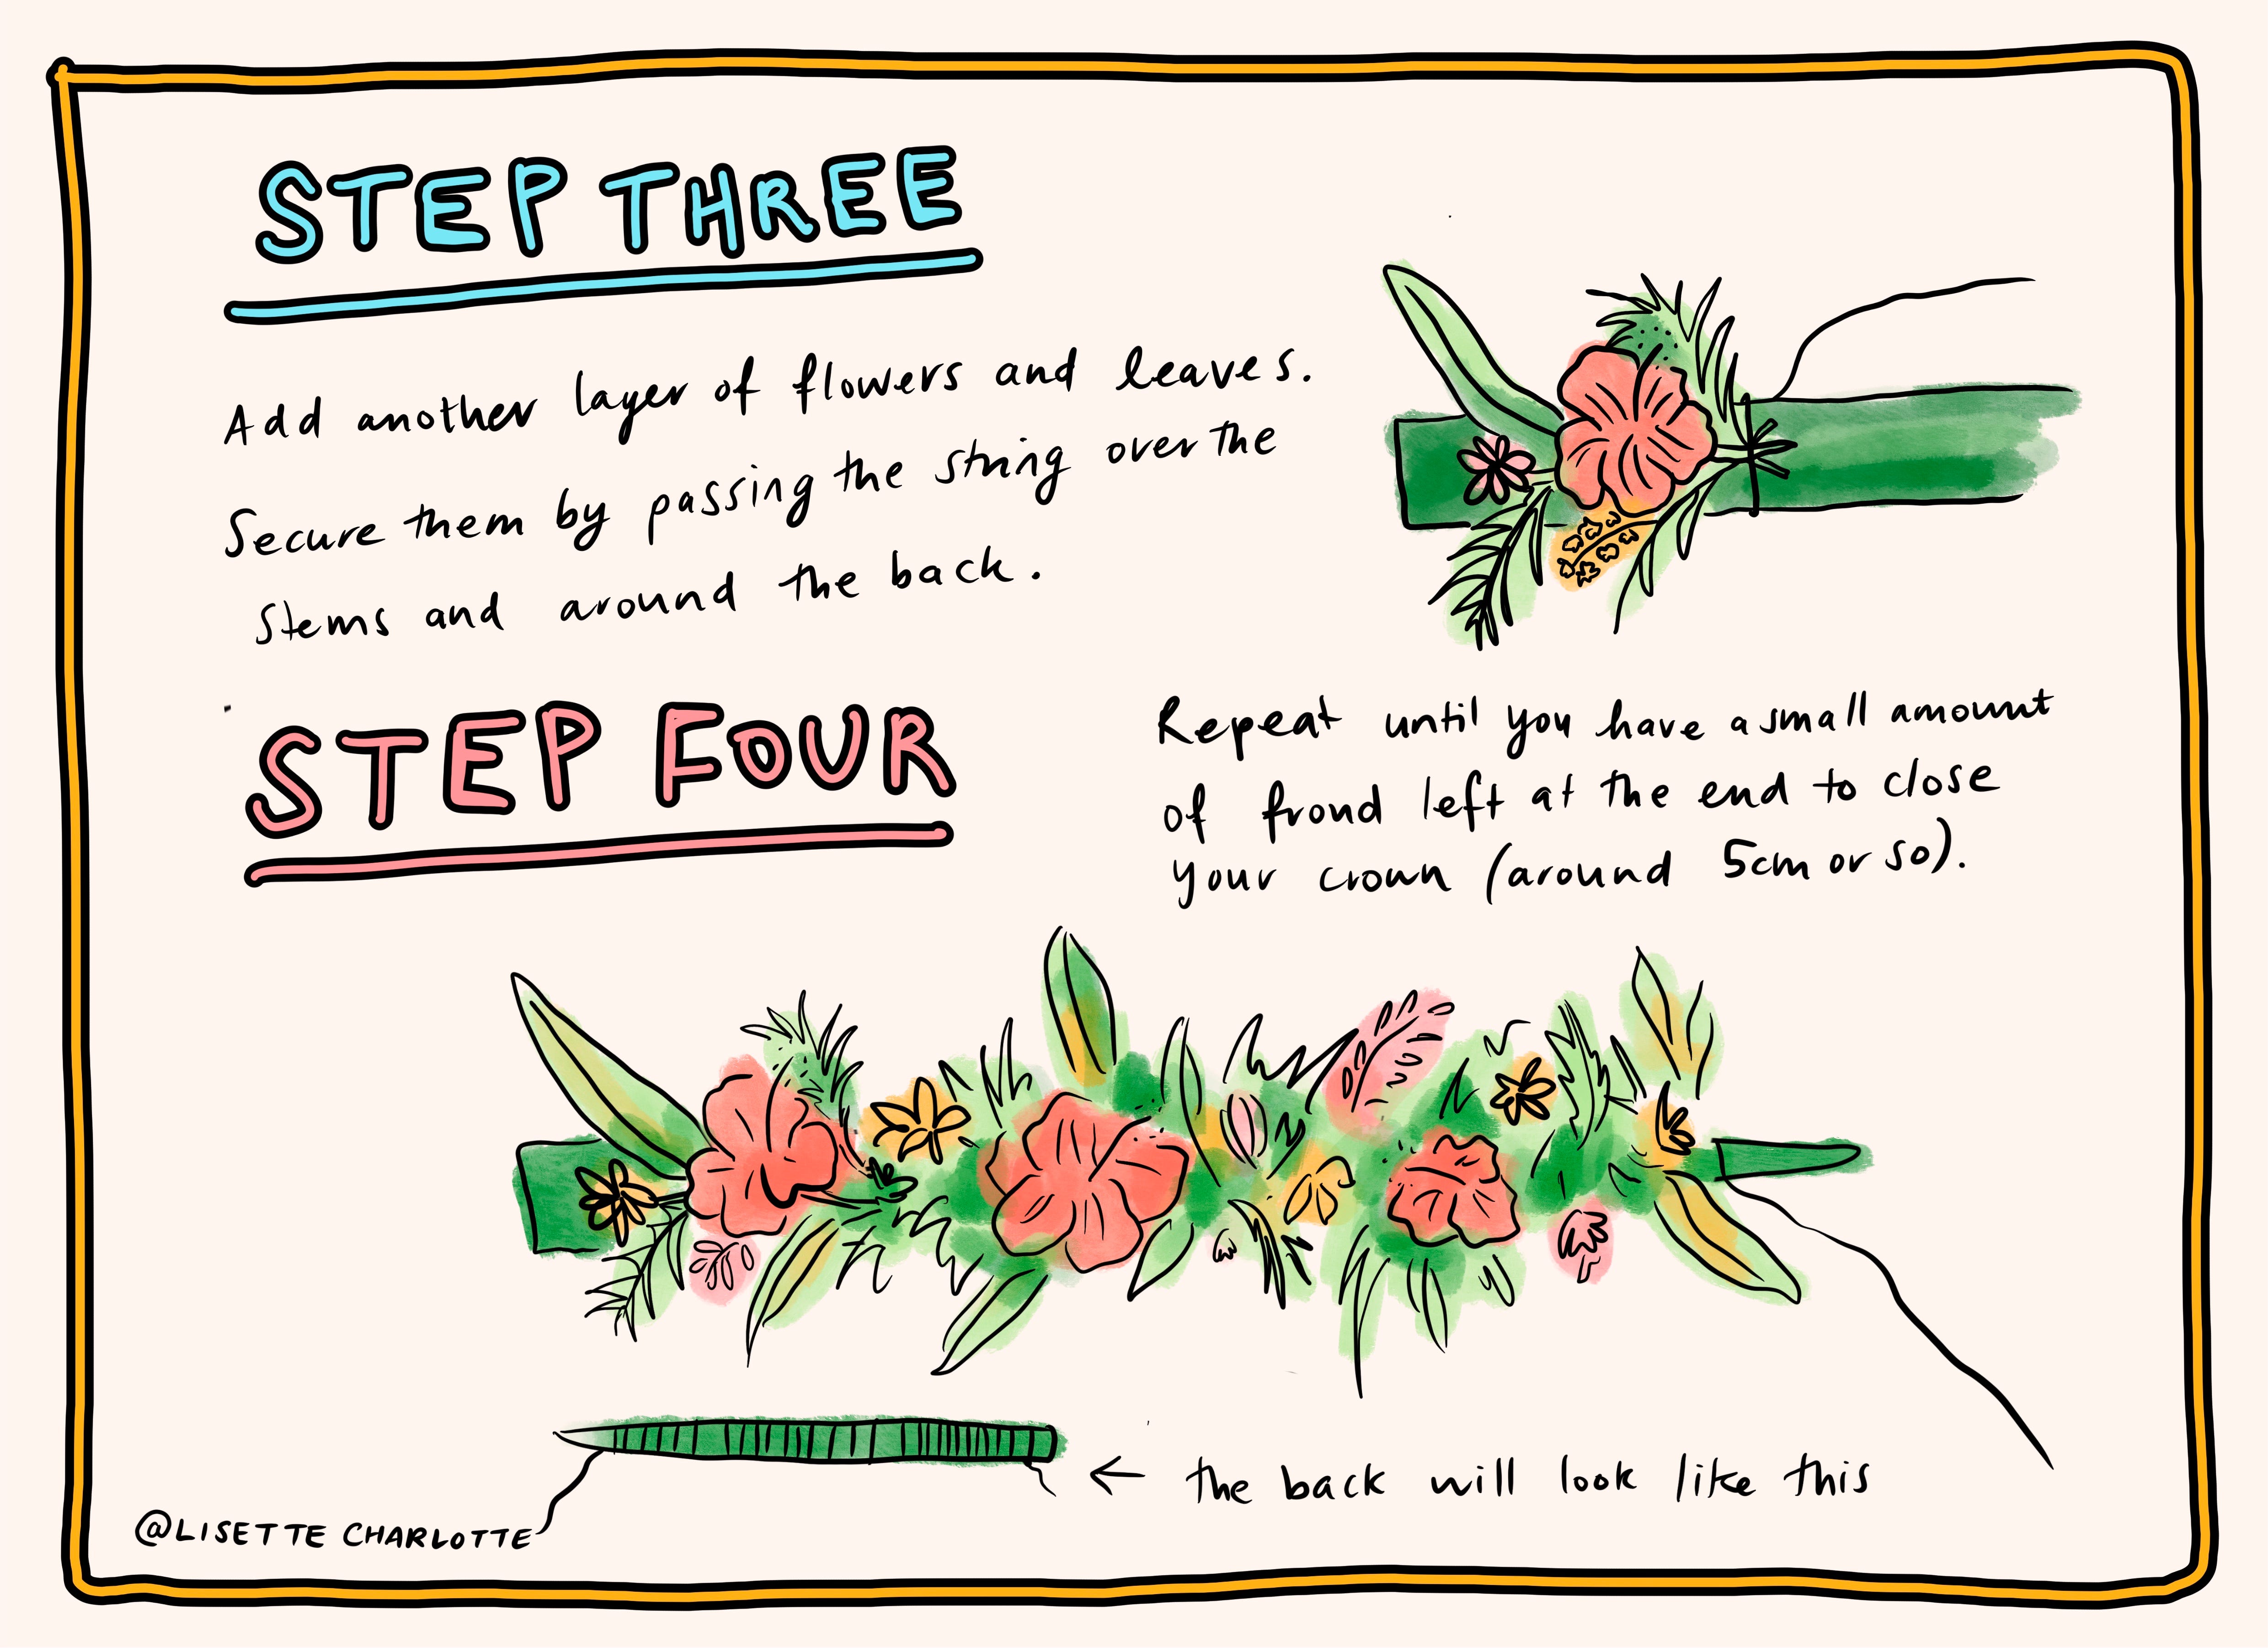 STEP THREE
Add another layer of flowers and leaves.
Secure them by passing the string over the
stems and around the back.
STEP FOUR
Repeat until you have a small amount
of frond left at the end to close
your crown (around 5cm or so).
← the back will look like this
@LISETTE CHARLOTTE